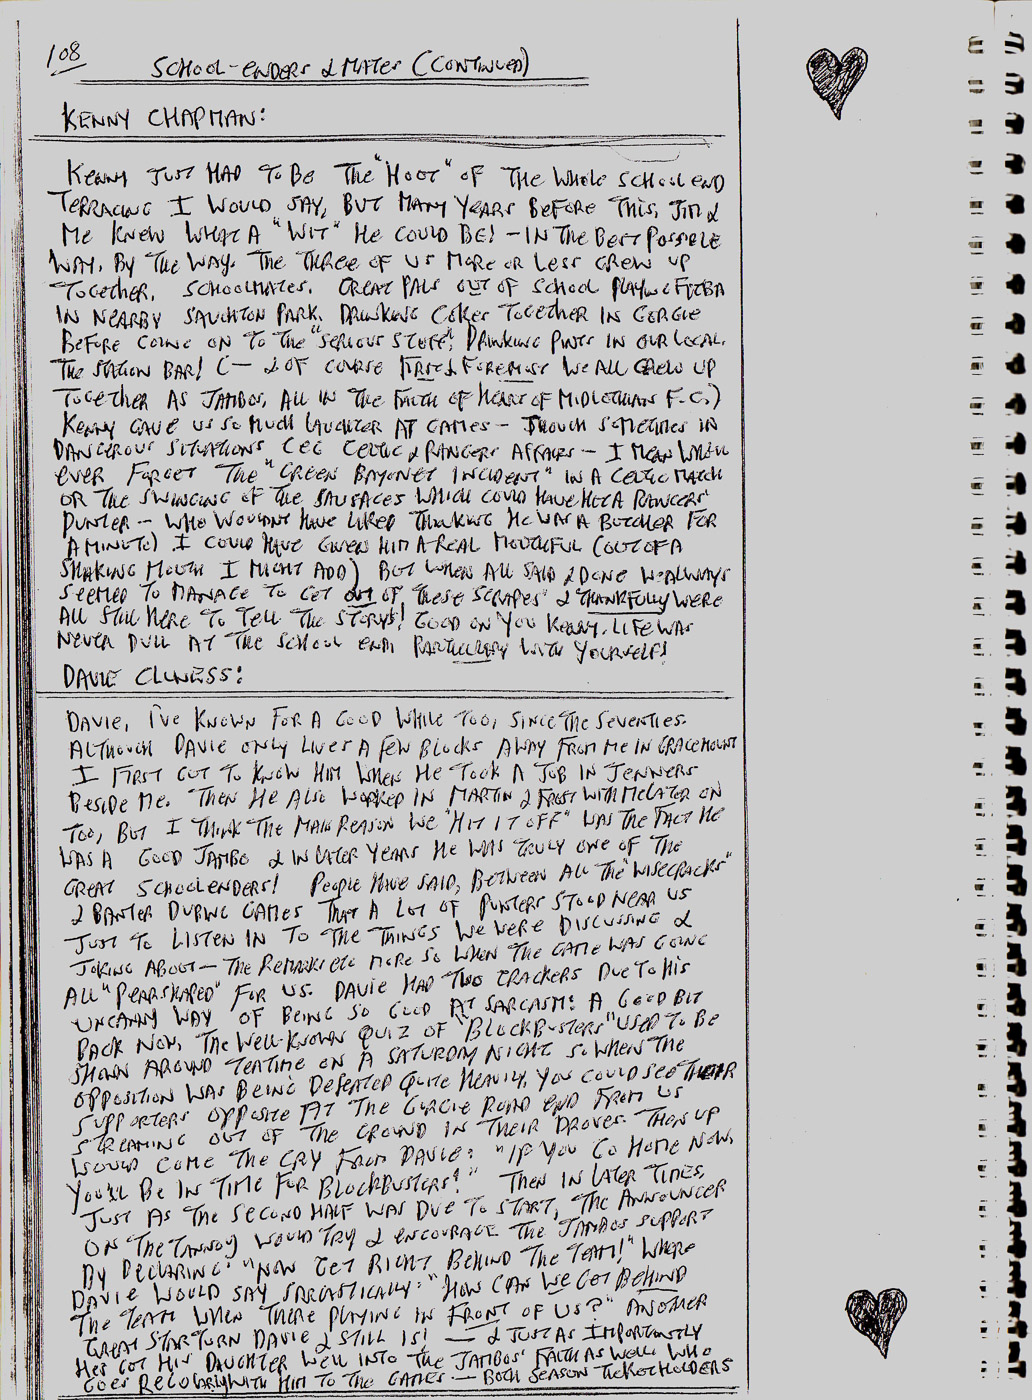 108
SCHOOL-ENDERS & MATES (CONTINUED)
KENNY CHAPMAN:
KENNY JUST HAD TO BE THE "HOOT" OF THE WHOLE SCHOOL END
TERRACING I WOULD SAY, BUT MANY YEARS BEFORE THIS, JIM &
ME KNEW WHAT A "WIT" HE COULD BE! - IN THE BEST POSSIBLE
WAY. BY THE WAY. THE THREE OF US MORE OR LESS GREW UP
TOGETHER, SCHOOLMATES. GREAT PALS OUT OF SCHOOL PLAYING FITBA
IN NEARBY SAUGHTON PARK. DRINKING COKES TOGETHER IN GORGIE
BEFORE GOING ON TO THE "SERIOUS STUFF"! DRINKING PINTS IN OUR LOCAL.
THE STATION BAR! (- & OF COURSE FIRST & FOREMOST WE ALL GREW UP
TOGETHER AS JAMBOS, ALL IN THE FAITH OF HEART OF MIDLOTHIAN F.C.)
KENNY GAVE US SO MUCH LAUGHTER AT GAMES - THOUGH SOMETIMES IN
DANGEROUS SITUATIONS (EG CELTIC & RANGERS AFFAIRS - I MEAN WHO'LL
EVER FORGET THE "GREEN BAYONET INCIDENT" IN A CELTIC MATCH
OR THE SWINGING OF THE SAUSAGES WHICH COULD HAVE HIT A RANGERS
PUNTER - WHO WOULDNT HAVE LIKED THINKING HE WAS A BUTCHER FOR
A MINUTE) I COULD HAVE GIVEN HIM A REAL MOUTHFUL (OUT OF A
SHAKING MOUTH I MIGHT ADD) BUT WHEN ALL SAID & DONE WE ALWAYS
SEEMED TO MANAGE TO GET OUT OF THESE "SCRAPES" & THANKFULLY WERE
ALL STILL HERE TO TELL THE STORYS! GOOD ON YOU KENNY. LIFE WAS
NEVER DULL AT THE SCHOOL END PARTICULARLY WITH YOURSELF!
DAVIE CLUNESS:
DAVIE, I'VE KNOWN FOR A GOOD WHILE TOO, SINCE THE SEVENTIES.
ALTHOUGH DAVIE ONLY LIVES A FEW BLOCKS AWAY FROM ME IN GRACEMOUNT
I FIRST GOT TO KNOW HIM WHEN HE TOOK A JOB IN JENNERS
BESIDE ME. THEN HE ALSO WORKED IN MARTIN & FROST WITH ME LATER ON
TOO, BUT I THINK THE MAIN REASON WE "HIT IT OFF" WAS THE FACT HE
WAS A GOOD JAMBO & IN LATER YEARS HE WAS TRULY ONE OF THE
GREAT SCHOOLENDERS! PEOPLE HAVE SAID, BETWEEN ALL THE "WISECRACKS"
& BANTER DURING GAMES THAT A LOT OF PUNTERS STOOD NEAR US
JUST TO LISTEN IN TO THE THINGS WE WERE DISCUSSING &
JOKING ABOUT - THE REMARKS ETC MORE SO WHEN THE GAME WAS GOING
ALL "PEARSHAPED" FOR US. DAVIE HAD TWO CRACKERS DUE TO HIS
UNCANNY WAY OF BEING SO GOOD AT SARCASM: A GOOD BIT
BACK NOW, THE WELL-KNOWN QUIZ OF "BLOCKBUSTERS" USED TO BE
SHOWN AROUND TEATIME ON A SATURDAY NIGHT SO WHEN THE
OPPOSITION WAS BEING DEFEATED QUITE HEAVILY, YOU COULD SEE THEIR
SUPPORTERS OPPOSITE AT THE GORGIE ROAD END FROM US
STREAMING OUT OF THE GROUND IN THEIR DROVES. THEN UP
WOULD COME THE CRY FROM DAVIE: "IF YOU GO HOME NOW,
YOU'LL BE IN TIME FOR BLOCKBUSTERS!" THEN IN LATER TIMES,
JUST AS THE SECOND HALF WAS DUE TO START, THE ANNOUNCER
ON THE TANNOY WOULD TRY & ENCOURAGE THE JAMBOS SUPPORT
BY DECLARING: "NOW GET RIGHT BEHIND THE TEAM!" WHERE
DAVIE WOULD SAY SARCASTICALLY: "HOW CAN WE GET BEHIND
THE TEAM WHEN THERE PLAYING IN FRONT OF US?" ANOTHER
GREAT STAR TURN DAVIE & STILL IS! - & JUST AS IMPORTANTLY
HES GOT HIS DAUGHTER WELL INTO THE JAMBOS' FAITH AS WELL WHO
GOES REGULARLY WITH HIM TO THE GAMES - BOTH SEASON TICKET HOLDERS